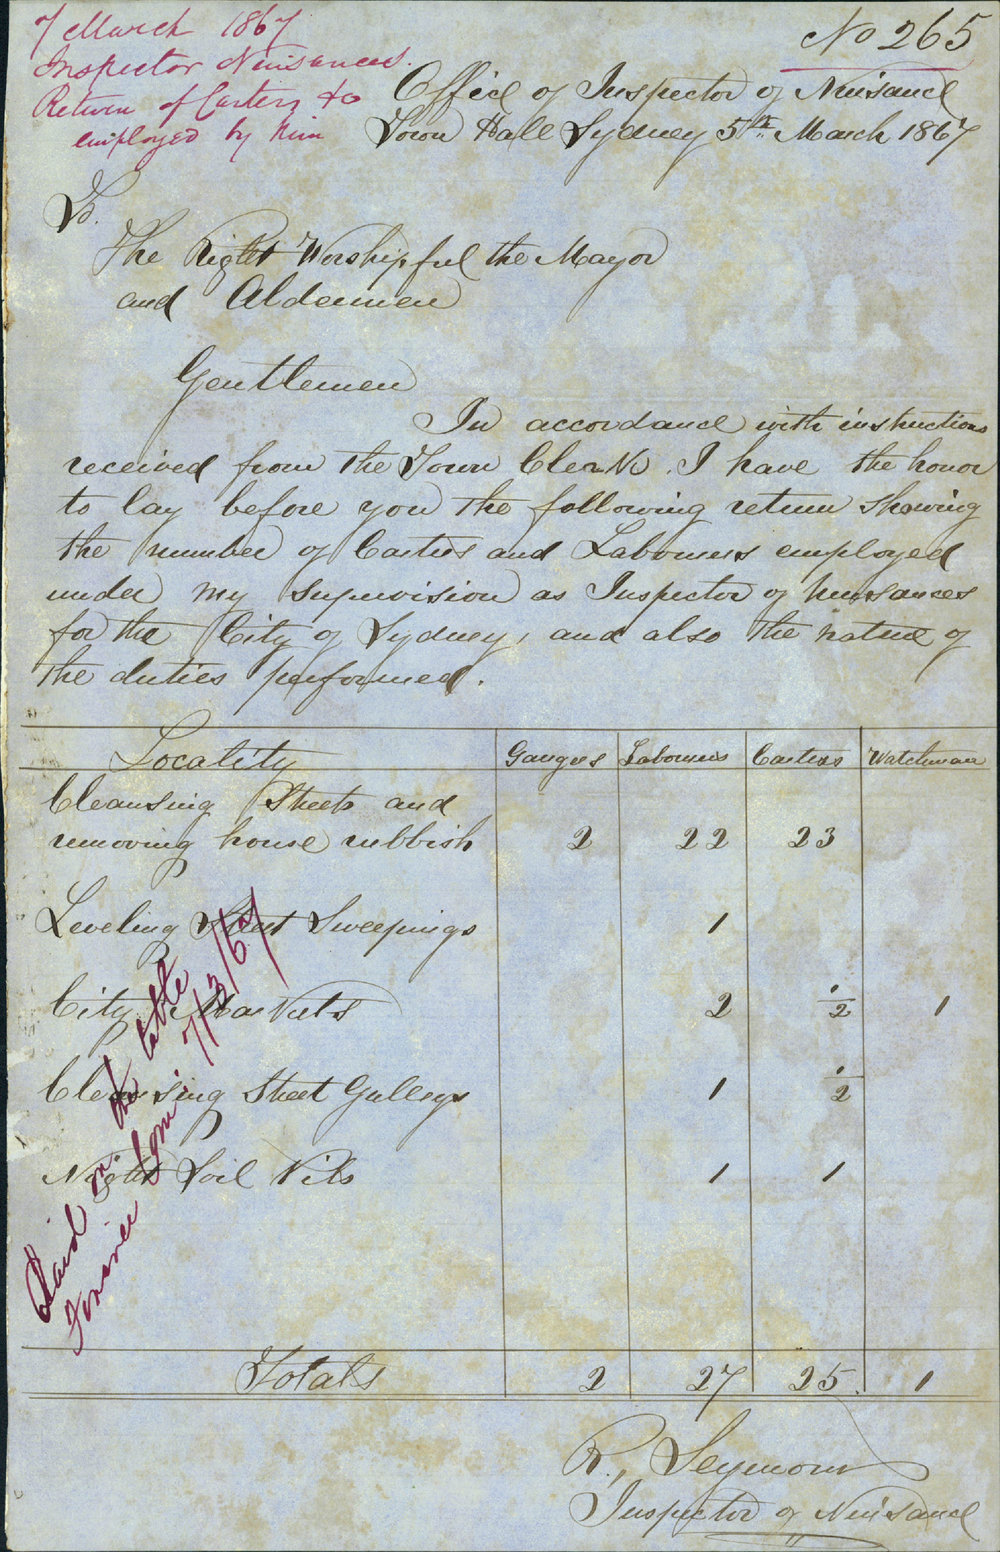 7 March 1867
Inspector Nuisances.
Return of Carters &c
employed by him
No 265
Office of Inspector of Nuisance
Town Hall Sydney 5th March 1867
To.
The Right Worshipful the Mayor
and Aldermen
Gentlemen
In accordance with instructions
received from the Town Clerk. I have the honor
to lay before you the following return Showing
the number of Carters and Labourers employed
under my Supervision as Inspector of Nuisances
for the City of Sydney, and also the nature of
the duties performed.
Locality Gangers Labourers Carters Watchman
Cleansing Streets and
removing house rubbish 2 22 23
Leveling Street Sweepings 1
City Markets 2 1/2 1
Cleansing Street Gulleys 1 1/2
Night Soil Pits 1 1
Laid on the table
Finance Com. 7/3/67
Totals 2 27 25. 1
R. Seymour
Inspector of Nuisance